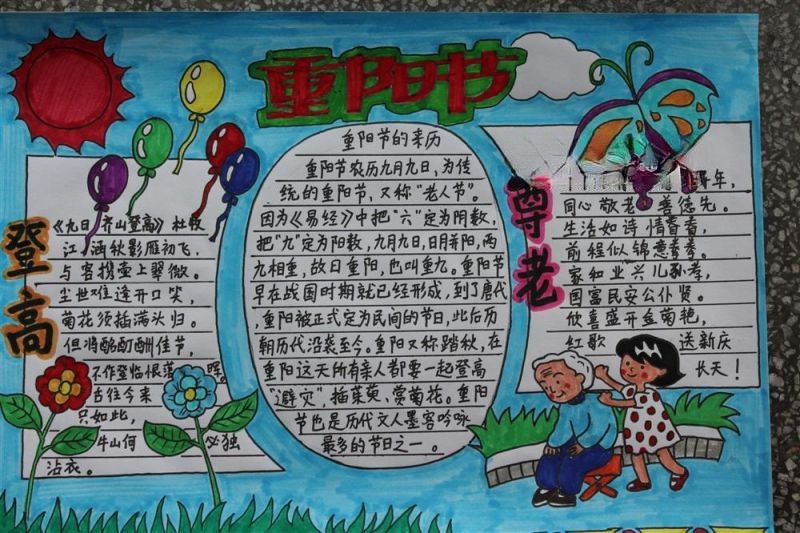 重阳节
登高
《九日齐山登高》杜牧
江涵秋影雁初飞，
与客携壶上翠微。
尘世难逢开口笑，
菊花须插满头归。
但将酩酊酬佳节，
不作登临恨落 晖。
古往今来
只如此，
牛山何 必独
沾衣。
重阳节的来历
重阳节农历九月九日，为传
统的重阳节，又称“老人节”。
因为《易经》中把“六”定为阴数，
把“九”定为阳数，九月九日，日月并阳，两
九相重，故曰重阳，也叫重九。重阳节
早在战国时期就已经形成，到了唐代
，重阳被正式定为民间的节日，此后历
朝历代沿袭至今。重阳又称踏秋，在
重阳这天所有亲人都要一起登高
“避灾”，插茱萸、赏菊花。重阳
节也是历代文人墨客吟咏
最多的节日之一。
尊老
年，
同心敬老 善德先。
生活如诗情眷眷，
前程似锦意
家和业兴儿孙孝，
国富民安公仆贤。
欣喜盛开金菊艳，
红歌 送新庆
长天！